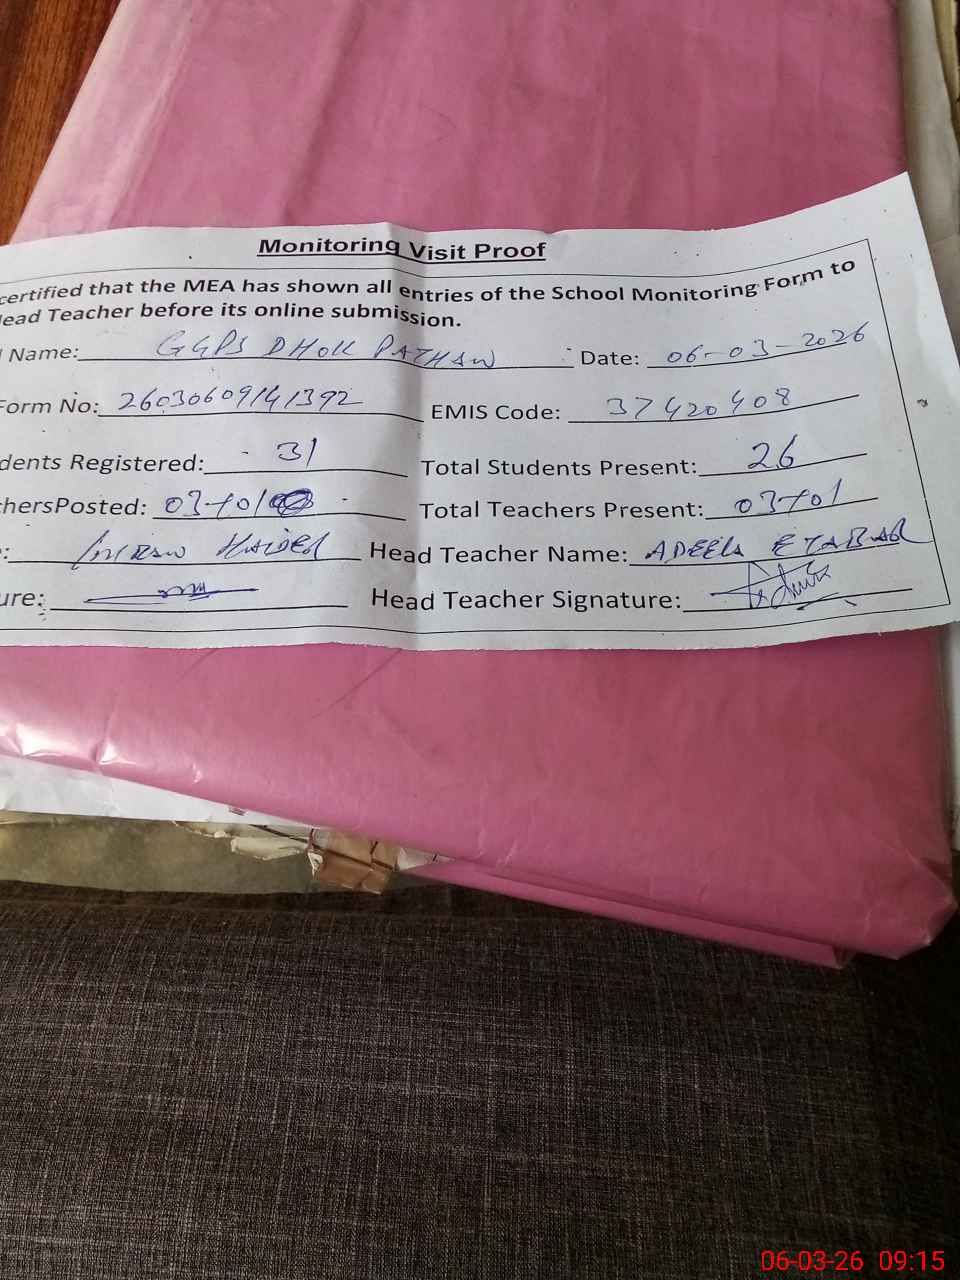 Monitoring Visit Proof
certified that the MEA has shown all entries of the School Monitoring Form to
ead Teacher before its online submission.
Name: GGPS DHOK PATHAN Date: 06-03-2026
Form No: 26030609141392 EMIS Code: 37420408
dents Registered: 31 Total Students Present: 26
hersPosted: 03+01 Total Teachers Present: 03+01
: IMRAN HAIDER Head Teacher Name: ADEELA ETABAR
ure: Head Teacher Signature:
06-03-26 09:15